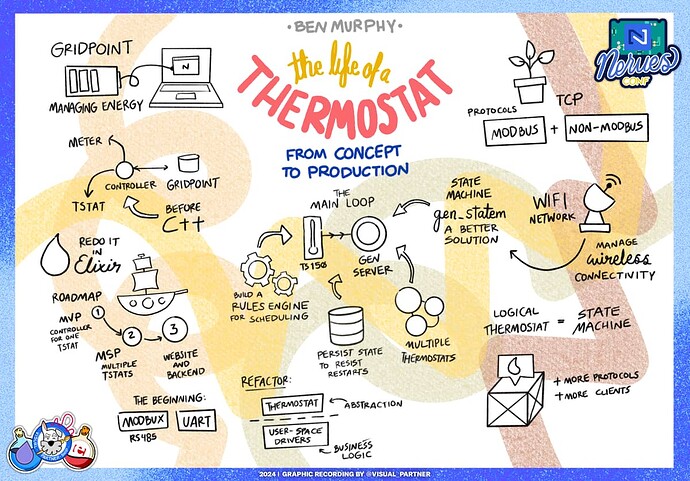 • BEN MURPHY •
the life of a
THERMOSTAT
FROM CONCEPT
TO PRODUCTION
N
Nerves
CONF
GRIDPOINT
N
MANAGING ENERGY
METER
CONTROLLER
GRIDPOINT
TSTAT
BEFORE
C++
REDO IT
IN
Elixir
ROADMAP
MVP
CONTROLLER
FOR ONE
TSTAT
1
2
3
MSP
MULTIPLE
TSTATS
WEBSITE
AND
BACKEND
THE BEGINNING:
MODBUX
UART
RS485
THE
MAIN LOOP
TS150
GEN
SERVER
BUILD A
RULES ENGINE
FOR SCHEDULING
PERSIST STATE
TO RESIST
RESTARTS
MULTIPLE
THERMOSTATS
STATE
MACHINE
gen_statem
A BETTER
SOLUTION
REFACTOR:
THERMOSTAT
ABSTRACTION
USER-SPACE
DRIVERS
BUSINESS
LOGIC
PROTOCOLS
TCP
MODBUS + NON-MODBUS
WIFI
NETWORK
MANAGE
wireless
CONNECTIVITY
LOGICAL
THERMOSTAT = STATE
MACHINE
+ MORE PROTOCOLS
+ MORE CLIENTS
2024 | GRAPHIC RECORDING BY @VISUAL_PARTNER